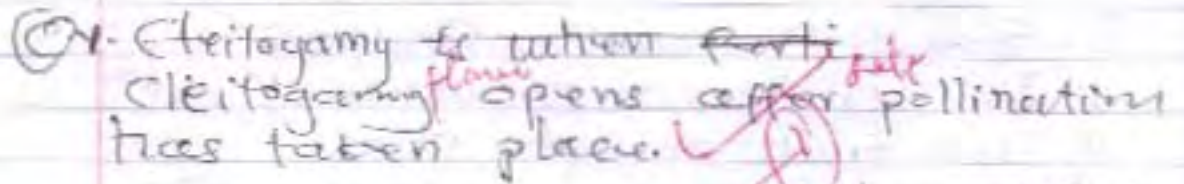 Cleitogamy is when ferti
Cleitogamy flower opens after self pollination
has taken place.